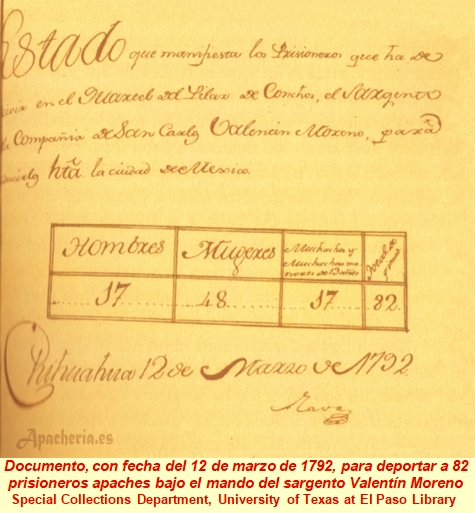 Estado que manifiesta los Prisioneros que ha de
en el Quartel del Pilar de Conchos, el Sargento
Compañia de San Carlos Valentin Moreno, para
hta la ciudad de Mexico.
Hombres Mugeres Muchachas y Muchachos me- nores de Total de
17 48 17 82
Chihuahua 12 de Marzo de 1792.
Nava
Apacheria.es
Documento, con fecha del 12 de marzo de 1792, para deportar a 82
prisioneros apaches bajo el mando del sargento Valentín Moreno
Special Collections Department, University of Texas at El Paso Library